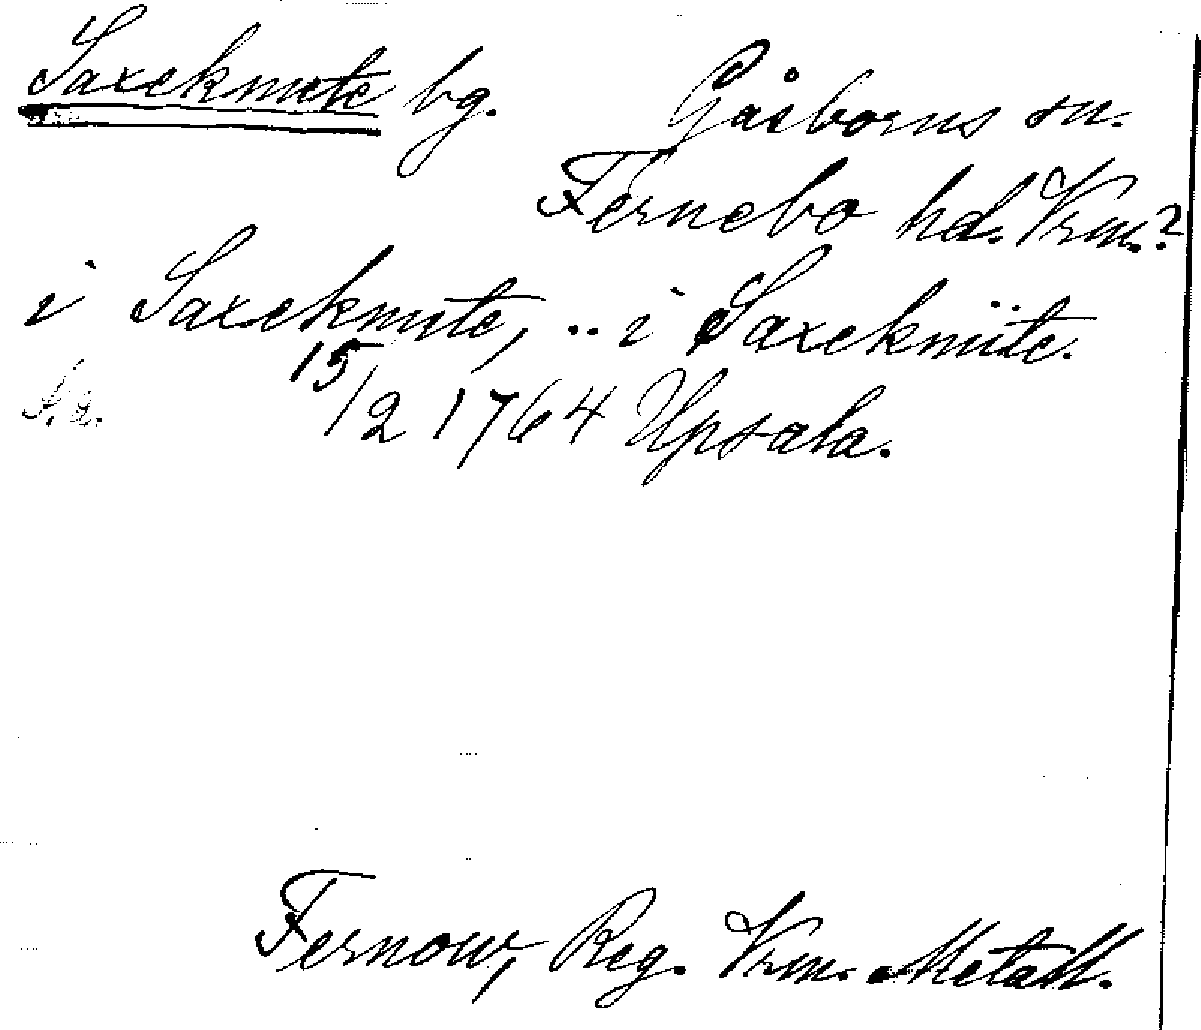 Saxeknute bg. Gåsborns sn.
Fernebo hd. Vrm.?
i Saxeknute, .. i Saxeknüte.
15/2 1764 Upsala.
Fernow, Reg. Vrm. Metall.